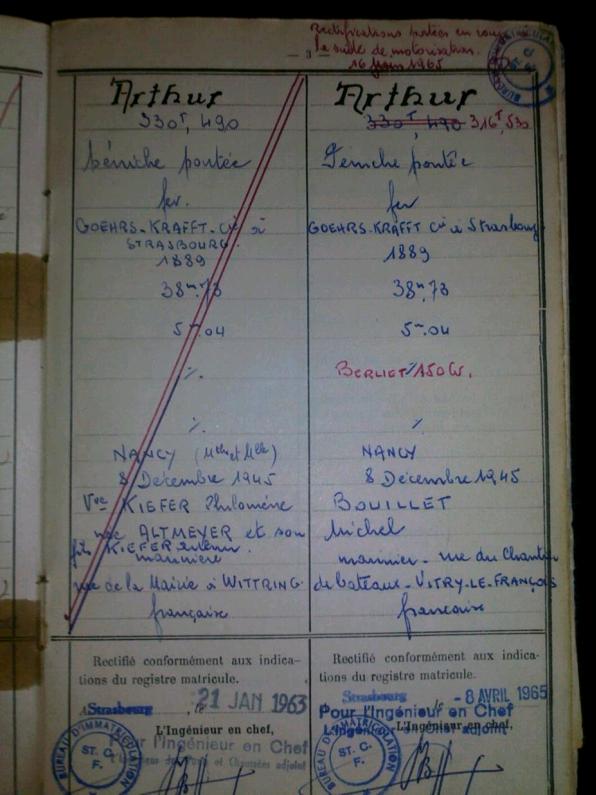 Rectifications portées en rouge
la suite de motorisation.
16 Juin 1965
— 3 —
Arthur
330T, 490
Péniche pontée
fer.
GOEHRS-KRAFFT. Cie à
STRASBOURG.
1889
38m,73
5m.04
%.
%.
NANCY (Mthe et Mlle)
8 Décembre 1945
Vve KIEFER Philomène
née ALTMEYER et son
fils KIEFER
marinière
rue de la Mairie à WITTRING
française
Rectifié conformément aux indica-
tions du registre matricule.
A Strasbourg, le 21 JAN 1963
L'Ingénieur en chef,
Pour l'Ingénieur en Chef
l'Ingénieur des Ponts et Chaussées adjoint
BUREAU D'IMMATRICULATION
ST. G.
F.
Arthur
330T, 490 316T,530
Péniche pontée
fer
GOEHRS-KRAFFT Cie à Strasbourg
1889
38m,73
5m.04
BERLIET 150 CV.
%
NANCY
8 Décembre 1945
BOUILLET
Michel
marinier - rue du Chantier
de bateaux - VITRY-LE-FRANÇOIS
française
Rectifié conformément aux indica-
tions du registre matricule.
Strasbourg, le - 8 AVRIL 1965
Pour l'Ingénieur en Chef
L'Ingénieur en chef,
l'Ingénieur en Chef adjoint
BUREAU D'IMMATRICULATION
ST. G.
F.